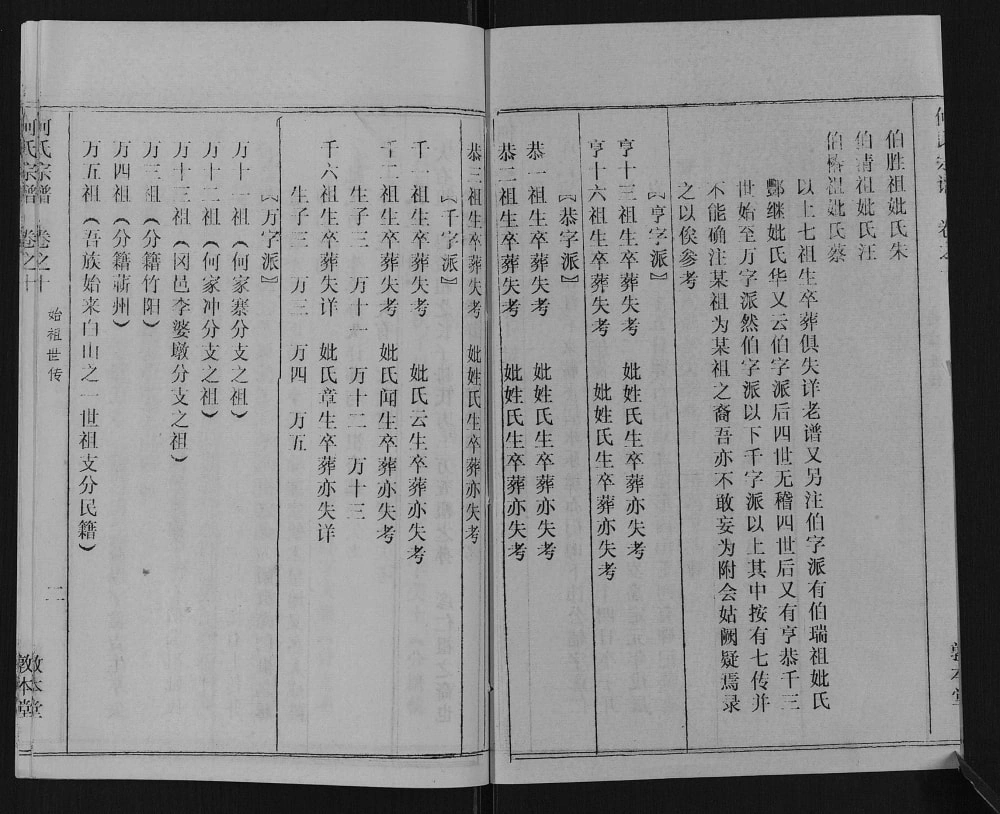 伯胜祖妣氏朱
伯清祖妣氏汪
伯椿祖妣氏蔡
以上七祖生卒葬俱失详老谱又另注伯字派有伯瑞祖妣氏
酆继妣氏华又云伯字派后四世无稽四世后又有亨恭千三
世始至万字派然伯字派以下千字派以上其中按有七传并
不能确注某祖为某祖之裔吾亦不敢妄为附会姑阙疑焉录
之以俟参考
〖亨字派〗
亨十三祖生卒葬失考　妣姓氏生卒葬亦失考
亨十六祖生卒葬失考　妣姓氏生卒葬亦失考
〖恭字派〗
恭一祖生卒葬失考　妣姓氏生卒葬亦失考
恭二祖生卒葬失考　妣姓氏生卒葬亦失考
恭三祖生卒葬失考　妣姓氏生卒葬亦失考
〖千字派〗
千一祖生卒葬失考　妣氏云生卒葬亦失考
千二祖生卒葬失考　妣氏闻生卒葬亦失考
生子三　万十一　万十二　万十三
千六祖生卒葬失详　妣氏章生卒葬亦失详
生子三　万三　万四　万五
〖万字派〗
万十一祖（何家寨分支之祖）
万十二祖（何家冲分支之祖）
万十三祖（冈邑李婆墩分支之祖）
万三祖（分籍竹阳）
万四祖（分籍蕲州）
万五祖（吾族始来白山之一世祖支分民籍）
何氏宗谱　卷之十　始祖世传　二　敦本堂